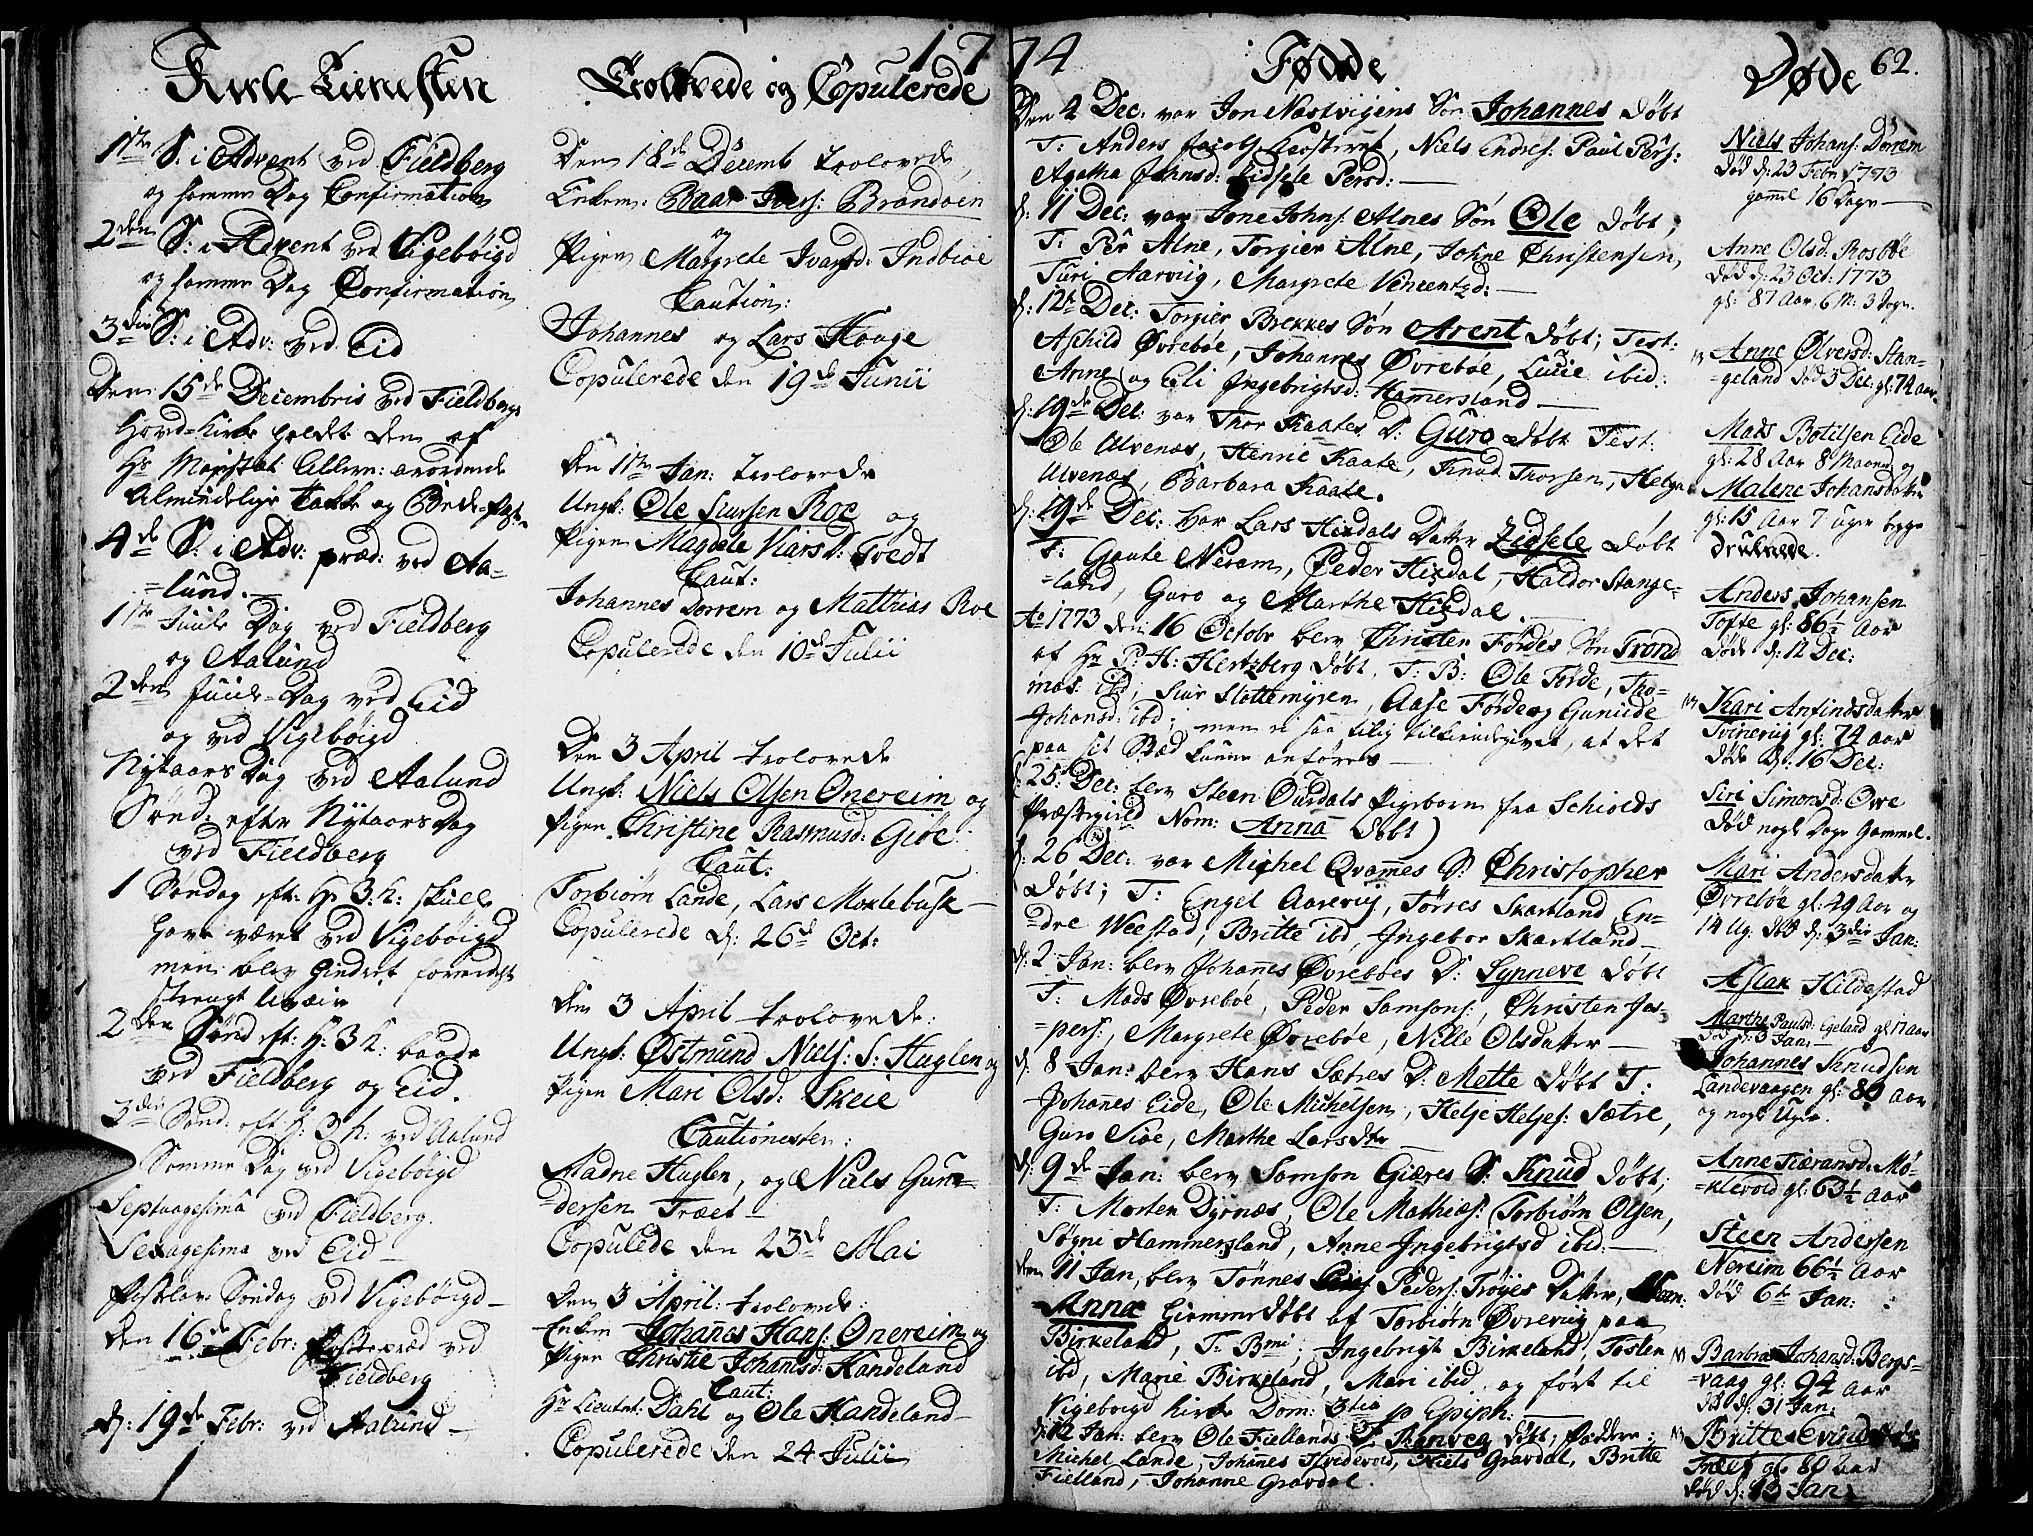 1774
62.
Kirke Tienesten
1ste S: i Advent ved Fieldberg
og samme Dag Confirmation
2den S: i Advent ved Vigebøigd
og samme Dag Confirmation
3die S: i Adv: ved Eid
Den 15de Decembris ved Fieldbergs
Hovd-Kirke holdet den af
Hs Majstæt Allern: anordnede
Almindelige Takke og Bede-fæst
4de S: i Adv: præd: ved Aa-
=lund.
1ste Juule Dag ved Fieldberg
og Aalund
2den Juule-Dag ved Eid
og ved Vigebøigd
Nytaars Dag ved Aalund
Sønd: efter Nytaars Dag
ved Fieldberg
1 Søndag eft: H: 3 K: skulle
have været ved Vigebøigd
men blev hindret formedelst
strengt Uvæir
2den Sønd eft: H: 3 K: baade
ved Fieldberg og Eid.
3die Sønd: eft H: 3 K: ved Aalund
Samme Dag ved Vigebøigd
Septuagesima ved Fieldberg.
Sexagesima ved Eid
Fastelavns Søndag ved Vigebøigd
Den 16de Febr: Fastepræd ved
Fieldberg
d: 19de Febr: ved Aalund
Trolovede og Copulerede
Den 18de Decemb trolovede
Enkem: Baar Ivers: Brandoen
og
Pigen Margrete Ivarsd: Indbioe
Caution:
Johannes og Lars Houge
Copulerede den 19de Junii
Den 11te Jan: trolovede
Ungk: Ole Siursen Roe og
Pigen Magdele Viarsd: Tvedt
Caut:
Johannes Dorrem og Matthias Roe
Copulerede den 10de Julii
Den 3 April trolovede
Ungk: Niels Olsen Onereim og
Pigen Christine Rasmusd: Giøe
Caut:
Torbiørn Lande, Lars Moxlebust
Copulerede d: 26de Oct:
Den 3 April trolovede:
Ungk: Østmund Niels: S: Huglen og
Pigen Mari Olsd: Skeie
Cautionister:
Aadne Huglen, og Niels Gun-
=dersen Træet
Copulede den 23de Mai
Den 3 April: trolovede:
Enkem Johannes Hans: Onereim og
Pigen Christie Johannsd: Handeland
Caut:
Hr Lieutnt: Dahl og Ole Handeland
Copulerede den 24 Julii
Fødde
Den 4 Dec: var Jon Nastvigens Søn Johannes døbt
T: Anders Jacobs, Niels Endres: Paul Pers:
Agatha Johnsd: Zidsele Persd:
d: 11 Dec: var Jone Johns: Alnes Søn Ole døbt,
T: Pér Alne, Torgier Alne, Johne Christensen,
Turi Aarvig, Margrete Vincentzd:
d: 12te Dec: Torgier Brekkes Søn Arent døbt; Test:
Aschild Øvrebøe, Johannes Øvrebøe, Lucie ibid:
Anne og Eli Ingebrigtsd: Hamersland
d: 19de Dec: var Thor Kaates D: Guro døbt Test:
Ole Ulvenæs, Henric Kaate, Knud Thorsen, Helga
Ulvenæs, Barbara Kaate.
d: 19de Dec: var Lars Hixdals Datter Zidsele døbt
T: Gaute Neram, Peder Hixdal, Haldor Stange-
=land, Guro og Marthe Hixdal.
Ao 1773 den 16 Octobr blev Christen Førdes Søn Trond
af Hr P: H: Hertzberg døbt, T: B: Ole Førde, Tho-
mas ibd, Siur Slottemyren, Aase Førde og Gunilde
Johansd: ibd; men ei saa tilig tilkiendegivet, at det
paa sit Sted kunne anføres
d: 25 Dec: blev Steen Ourdals Pigebarn fra Schioeds
Præstegield Nom: Anna døbt
d: 26 Dec: var Michel Qvames S: Christopher
døbt; T: Engel Aarevig, Tørres Skartland En-
=dre Weestad, Britte ibd, Ingebor Skartland
d: 2 Jan: blev Johannes Øvrebøes D: Synneve døbt
T: Mads Øvrebøe, Peder Samsons:, Christen Jas-
=pers:, Margrete Øvrebøe, Nille Olsdatter
d: 8 Jan: blev Hans Sætres D: Mette døbt T:
Johannes Eide, Ole Michelsen, Helje Heljes: Sætre,
Guro Sioe, Marthe Larsdtr
d: 9de Jan: blev Samson Giæres S: Knud døbt;
T: Morten Dyrnæs, Ole Mathias: Torbiørn Olsen,
Søgni Hammersland, Anne Ingebrigtsd ibid:
den 11 Jan, blev Tønnes Peders: Trøyes Datter,
Anna hiemmedøbt af Torbiørn Øvrevig paa
Birkeland, T: Bmi; Ingebrigt Birkeland, Tosten
ibd, Marie Birkeland, Mari ibid og ført til
Vigebøigd Kirke Dom: 3tia p Epiph:
d: 12 Jan: blev Ole Fiellands D: Ranveg døbt, Faddere:
Michel Lande, Johannes Hvidevold, Niels Gravdal, Britte
Fielland, Johanne Gravdal.
Døde
Niels Johans: Dørrem
død d: 23 Febr 1773
gaml 16 Dage
Anne Olsd: Rosbøe
død d: 23 Oct: 1773
gl: 87 Aar, 6 M: 3 Dage.
Anne Ølversd: Stan-
=geland død 3 Dec: gl: 74 aar
Mads Botilsen Eide
gl: 28 Aar 8 Maaned og
Malene Johansdatter
gl: 15 Aar 7 uger begge
druknede.
Anders Johansen
Tofte gl: 86½ Aar
døde d: 12 Dec:
Kari Anfindsdatter
Tvinevig gl: 74 aar
døde d: 16 Dec:
Siri Simonsd: Owe
død nogle Dage Gammel.
Mari Andersdatter
Øvrebøe gl: 29 Aar og
14 Ug. død d: 3die Jan:
Aslak Hildestad
Marthe Paulsd: Egeland gl 17 aar
d: 3 Jan:
Johannes Knudsen
Landevaagen gl: 80 aar
og nogle Uger.
Anne Tiæransd: Mø-
=klevold gl: 63½ Aar
Steen Andersen
Nereim 66½ Aar
død 6te Jan:
Barbra Johansd: Bergs-
=vaag gl: 94 aar
død d: 31 Jan:
Britte Evind
Træet gl: 80 aar
død d: 13 Jan: